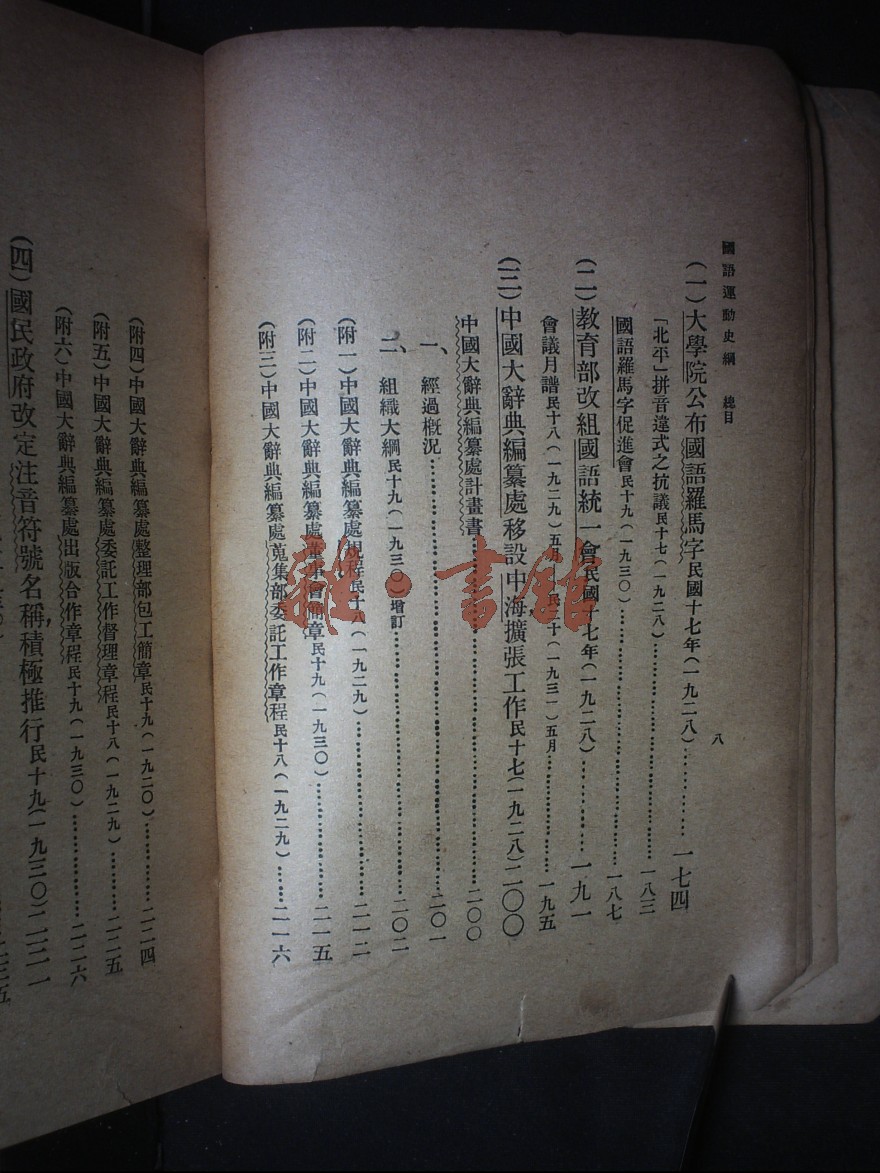 國語運動史綱　總目
八
(一)大學院公布國語羅馬字民國十七年(一九二八)…………一七四
「北平」拼音違式之抗議民十七(一九二八)…………一八三
國語羅馬字促進會民十九(一九三〇)…………一八七
(二)教育部改組國語統一會民國十七年(一九二八)…………一九一
會議月譜民十八(一九二九)五月 民二十(一九三一)五月…………一九五
(三)中國大辭典編纂處移設中海,擴張工作民十七(一九二八)二〇〇
中國大辭典編纂處計畫書…………二〇〇
一、經過概況…………二〇一
二、組織大綱民十九(一九三〇)增訂…………二〇二
(附一)中國大辭典編纂處規程民十八(一九二九)…………二一二
(附二)中國大辭典編纂處董事會簡章民十九(一九三〇)…………二一五
(附三)中國大辭典編纂處蒐集部委託工作章程民十八(一九二九)……二一六
(附四)中國大辭典編纂處整理部包工簡章民十九(一九二〇)…………二二四
(附五)中國大辭典編纂處委託工作督理章程民十八(一九二九)………二二五
(附六)中國大辭典編纂處出版合作章程民十九(一九三〇)…………二二六
(四)國民政府改定注音符號名稱,積極推行民十九(一九三〇)二三一
雜·書館